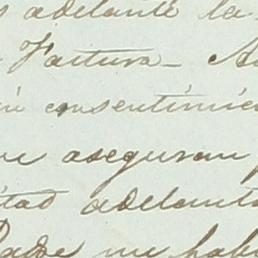 s adelante la
Factura - A
consentimie
ue aseguran p
itad adelanta
Padre me hab